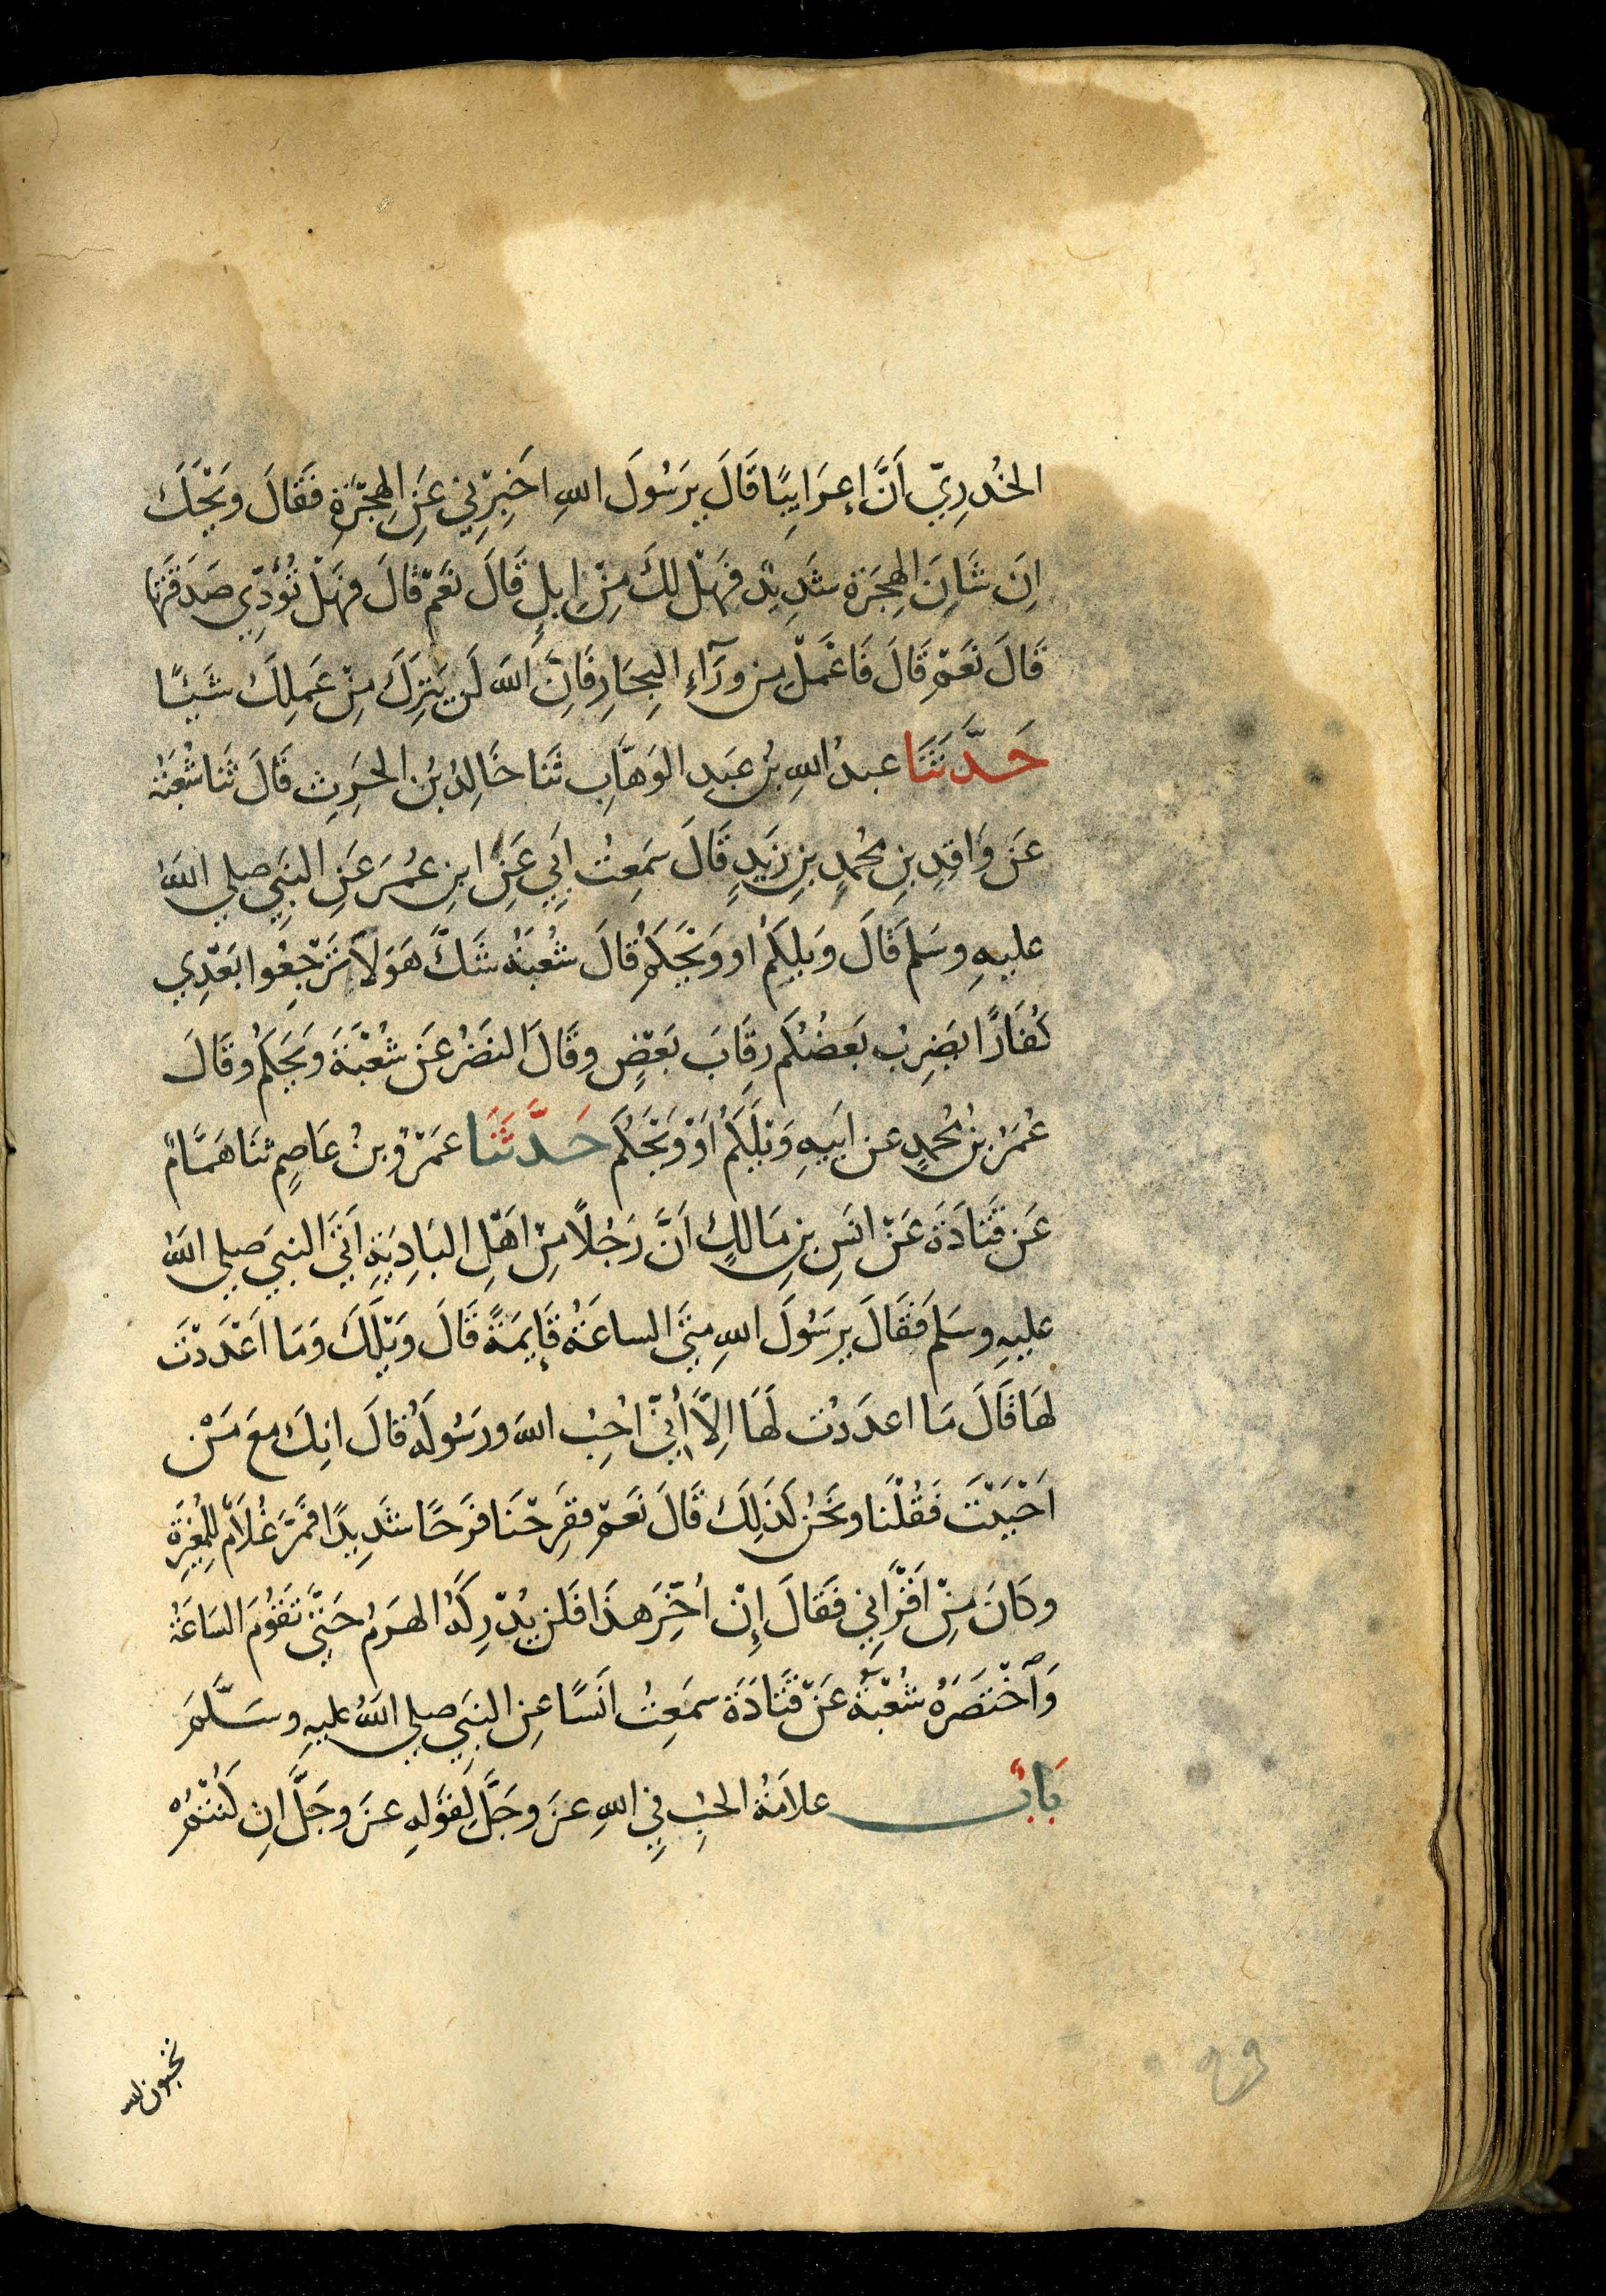 الخُدرِيّ اَنَّ اِعرَابِيًا قَالَ يرَسُولَ اللهِ اخبِرْنِي عَنِ الهِجْرَةِ فَقَالَ ويَحْكَ
اِنَ شَانَ الهِجَرَة شَدِيْد فَهَلْ لكَ مِنْ اِبِلٍ قَالَ نَعَمْ قَالَ فهَلْ تُؤدِّي صَدَقَتَهَا
قَالَ نَعَمْ قَالَ فَاعْمَلْ مِن ورَآءِ البِحَارِ فَاِنَّ اللهَ لَن يَتِرَكَ مِنْ عَمِلكَ شَيئًا
حَدَّثَنَا عبدُ اللهِ بنُ عَبدِ الوَهَّابِ ثَنَا خَالِدُ بنُ الحَرِثِ قَالَ ثَنَا شُعْبَةُ
عَن وَاقِدِ بنِ مُحمدٍ بنِ زَيدٍ قَالَ سَمِعتُ اَبِي عَنِ ابنِ عُمَرَ عَنِ النبَيِ صلي اللهُ
عليهِ وسَلمَ قَالَ وَيلَكُمْ او وَيْحَكُمْ قَالَ شُعْبَةُ شَكَّ هَوَ لاَ تَرْجِعُوا بَعْدِي
كُفَارًا يضِربُ بَعضُكُم رِقَابَ بَعْضٍ وقَالَ النضَرُ عَن شُعْبَةَ وَيحَكُمُ وقَالَ
عُمَرُ بنُ مُحمدٍ عن ابَيهِ وَيْلَكُمْ اَوْ وَيْحَكُم حَدَّثَنَا عمَرْو بنُ عَاصِمٍ ثنَا هَمَّامٌ
عَن قَتَادَةَ عَنْ انَسِ بنِ مَالكٍ اَنَّ رَجُلاً مِنْ اَهْلِ البَادِيَةِ اَتَي النبيَ صلي اللهُ
عليهِ وسَلمَ فَقَالَ يرَسُولَ اللهِ متَي الساعَةُ قَإيمَةً قَالَ وَيْلَكَ وَمَا اَعْدَدْتَ
لهَا قَالَ مَا اعدَدْتُ لَهَا اِلاَّ أنِّي اُحِبُ اللهَ ورَسُولَهُ قالَ انِكَ معَ مَنْ
اَحْبَبْتَ فَقُلْنَا ونَحَنُ كذَلِكَ قَالَ نَعَمْ ففَرِحْنَا فرَحًا شَدِيدًا فَمرَّ غُلاَمٌ لِلمُغِيرَةِ
وكَانَ مِنْ اَقْرَانِي فقَالَ اِنْ اُخِّرَ هذَا فَلن يُدْرِكَهُ الهرَمُ حَتَّي تَقوُمَ السَاعَةُ
وَاَخْتَصَرَهُ شُعْبَةُ عَنْ قَتَادَةَ سمَعِتُ انَسًا عِنِ النبَيِ صلي اللهُ عليهِ وسَلَّمَ
بَابُ علاَمَةُ الحبِ فِي اللهِ عزَ وجَلَّ لِقوَلِهِ عزَ وجَلَّ انِ كُنْتُمْ
تحبون الله
٩٩